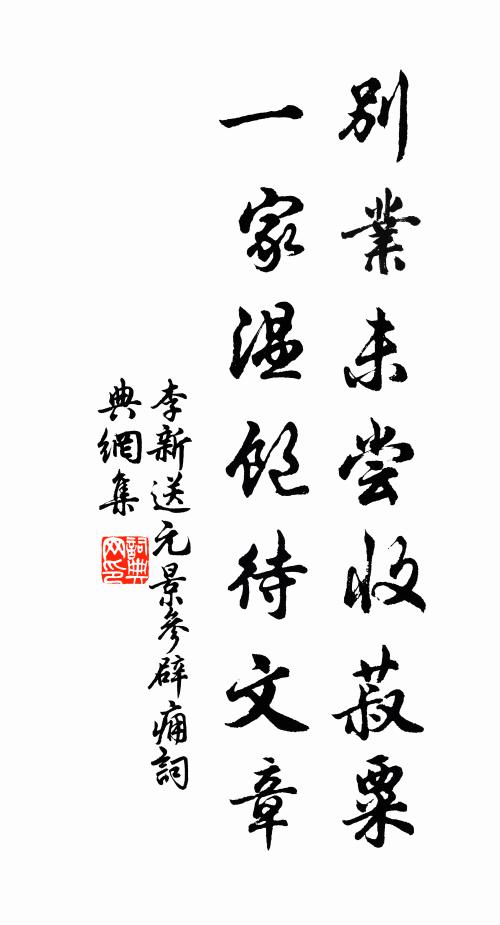 別業未嘗收菽粟
一家温飽待文章
李新送元景參辟痈詞
典網集
詞典網印